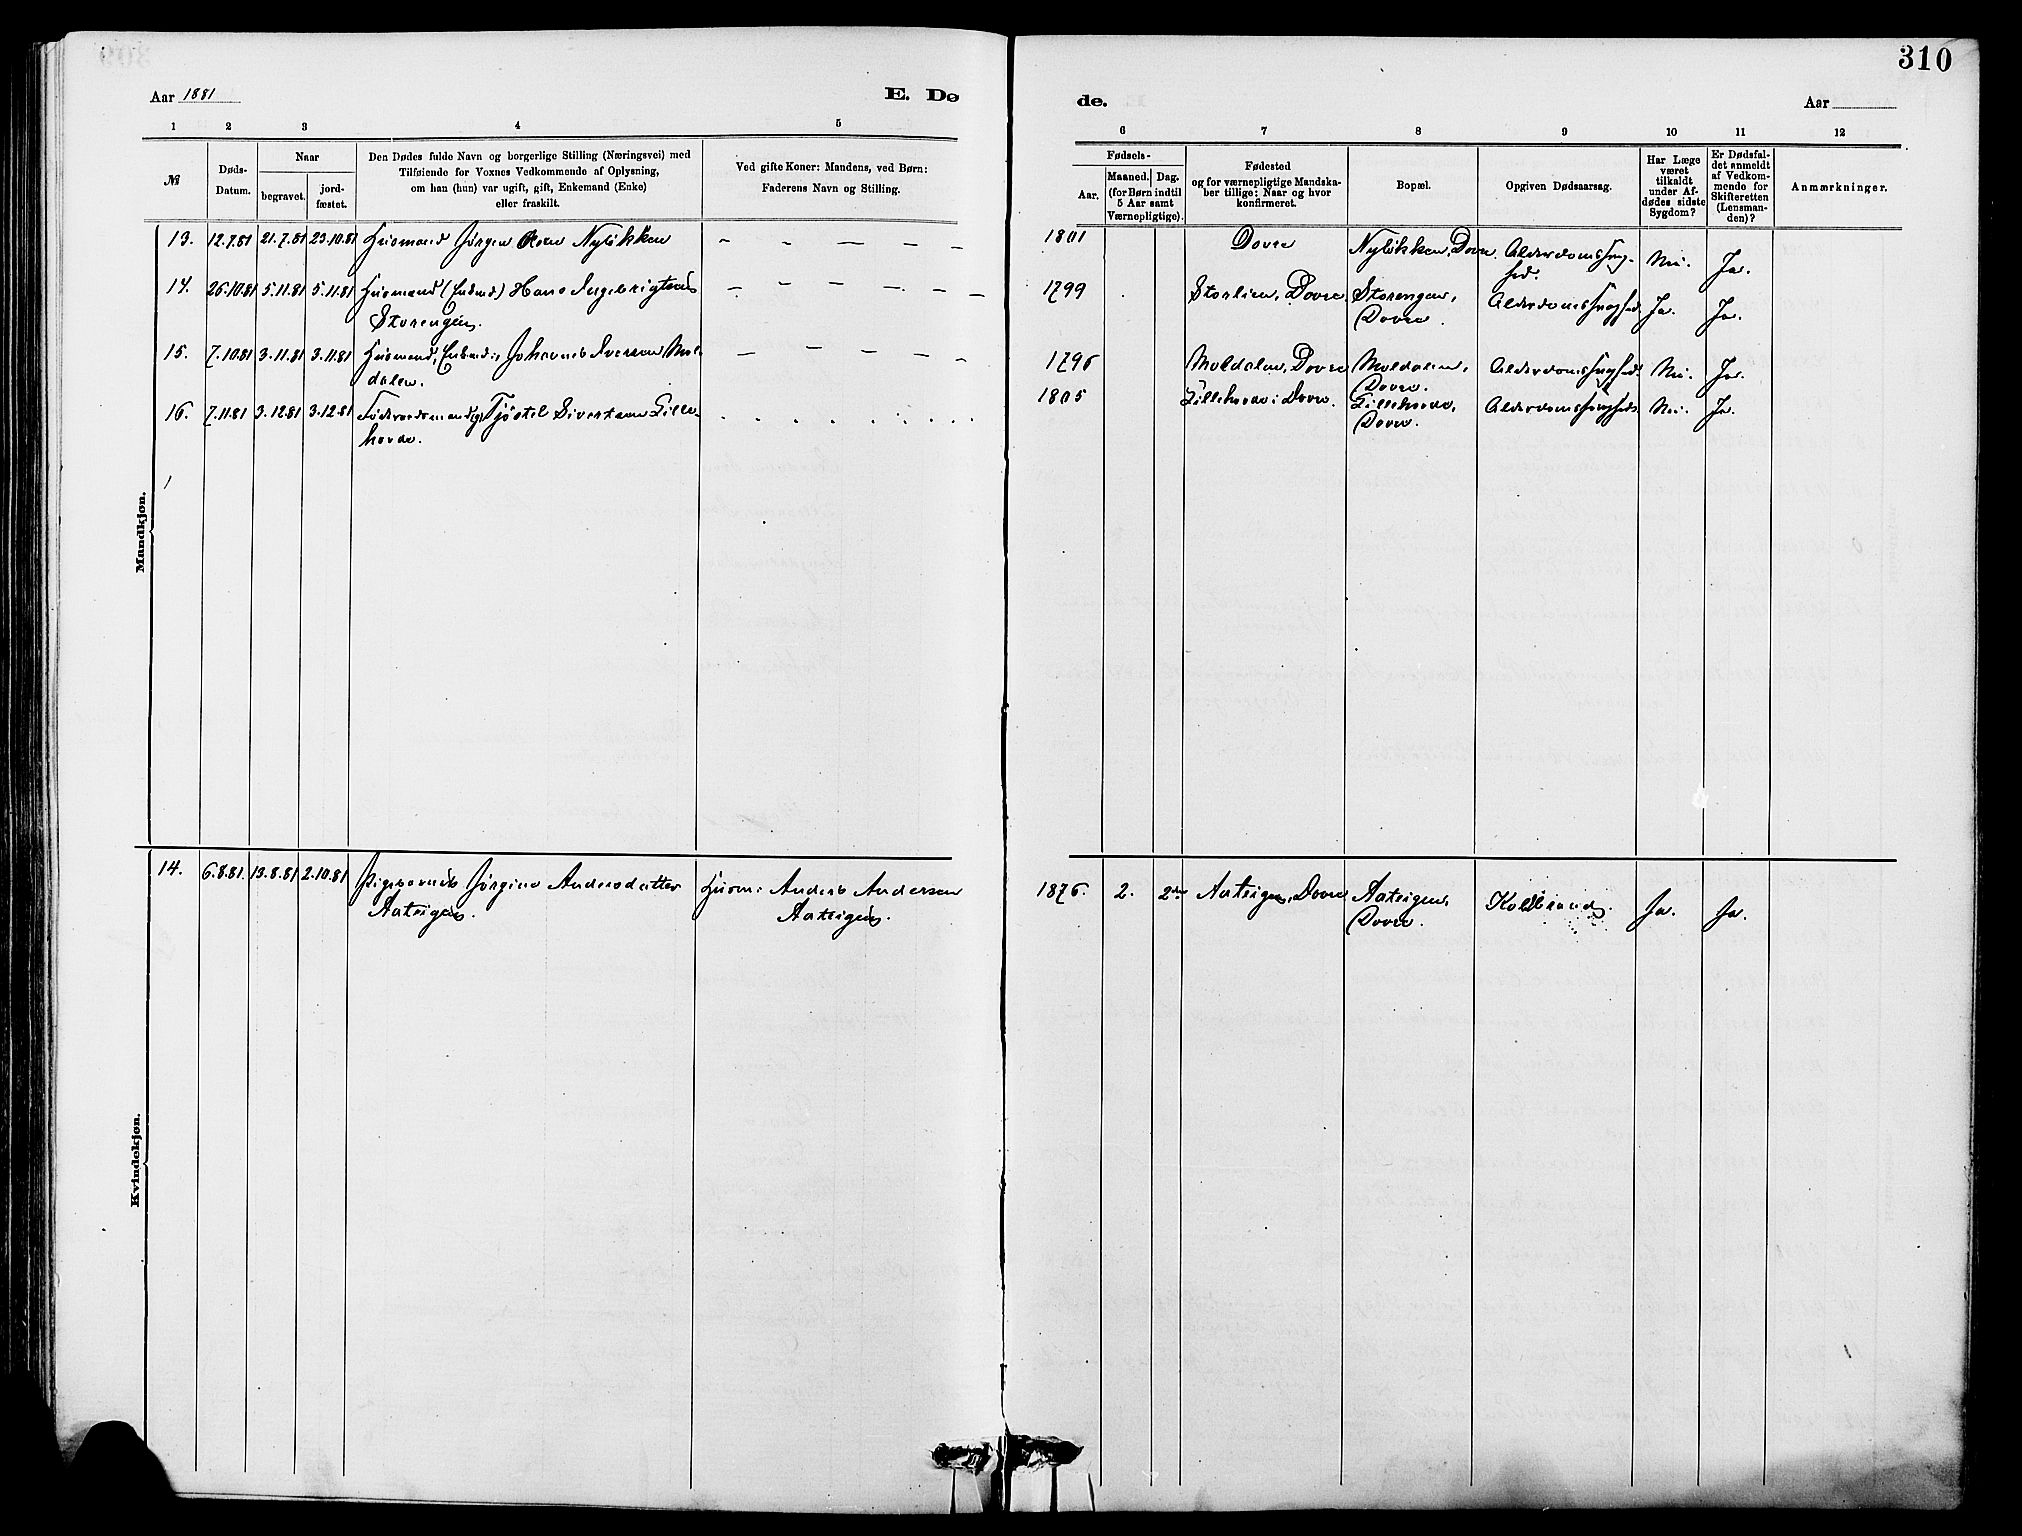 310
Aar 1881
E. Dø
de.
Aar
1 2 3 4 5
6 7 8 9 10 11 12
№
Døds-
Datum.
Naar
begravet.
jord-
fæstet.
Den Dødes fulde Navn og borgerlige Stilling (Næringsvei) med
Tilføiende for Voxnes Vedkommende af Oplysning,
om han (hun) var ugift, gift, Enkemand (Enke)
eller fraskilt.
Ved gifte Koner: Mandens, ved Børn:
Faderens Navn og Stilling.
Fødsels-
Aar.
Maaned. Dag.
(for Børn indtil
5 Aar samt
Værnepligtige).
Fødested
og for værnepligtige Mandska-
ber tillige: Naar og hvor
konfirmeret.
Bopæl.
Opgiven Dødsaarsag.
Har Læge
været
tilkaldt
under Af-
dødes sidste
Sygdom?
Er Dødsfal-
det anmeldt
af Vedkom-
mende for
Skifteretten
(Lensman-
den)?
Anmærkninger.
Mandkjøn.
13. 12.7.81 21.7.81 23.10.81 Husmand Jørgen Nyløkken – – – – – 1801 Dovre Nyløkken, Dovre Alderdomssvag-
hed. Nei. Ja.
14. 26.10.81 5.11.81 5.11.81 Husmand (Enkmd) Hans Ingebrigtsen – – – – – – 1799 Storlien, Dovre Storengen, Alderdomssvaghed Ja. Ja.
Storengen. Dovre.
15. 7.10.81 3.11.81 3.11.81 Husmand, Enkmd., Johannes Iversen Mol- – – – – – 1796 Moldalen, Dovre Moldalen, Alderdomssvaghed. Nei. Ja.
dalen. Dovre.
16. 7.11.81 3.12.81 3.12.81 Føderaadsmand, Tjøstel Sivertsen Lille- 1805 Lillehovde i Dovre. Lillehovde, Alderdomssvaghed Nei. Ja.
hovde. Dovre.
Kvindekjøn.
14. 6.8.81. 13.8.81 2.10.81 Pigebarnet Jørgine Andersdatter Husm. Anders Andersen 1876. 2. 2den Aateigen, Dovre Aateigen, Koldbrand. Ja. Ja.
Aateigen. Aateigen. Dovre.